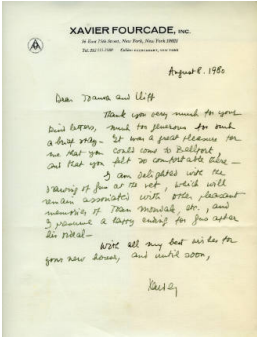 XAVIER FOURCADE, INC.
36 East 75th Street, New York, New York 10021
August 8, 1980
Dear and Cliff
Thank you very much for your
kind letters, much too generous for such
a brief stay. It was a great pleasure for
me that you could come to Bellport
and that you felt so comfortable there—
I am delighted with the
drawing of Gus at the vet, which will
remain associated with other pleasant
memories of Mondale, etc., and
I presume a happy ending for Gus after
his ordeal—
With all my best wishes for
your new house, and until soon,